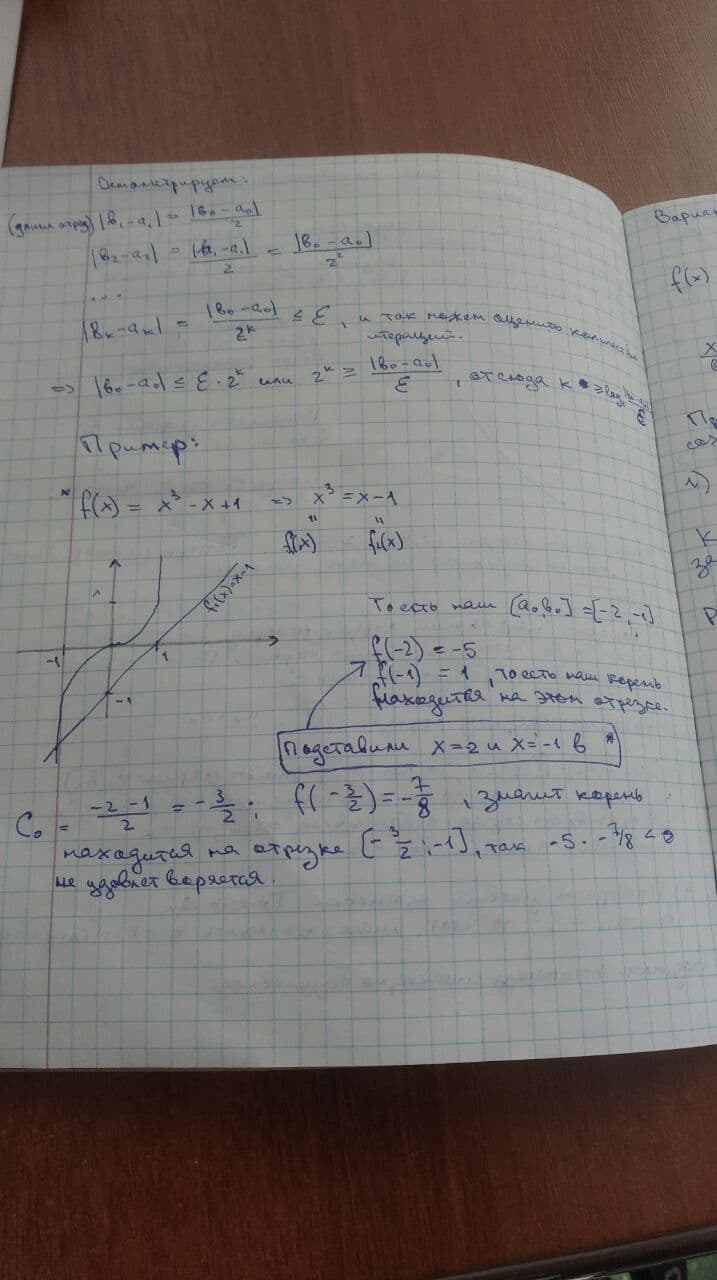 Остаметрируем:
(длина отрезка) |b₁-a₁| = |b₀-a₀|/2
|b₂-a₂| = |b₁-a₁|/2 = |b₀-a₀|/2²
...
|bₖ-aₖ| = |b₀-a₀|/2ᵏ ≤ ε, и так можем оценить количество
итераций.
=> |b₀-a₀| ≤ ε·2ᵏ или 2ᵏ ≥ |b₀-a₀|/ε, отсюда k ≥ log₂ |b₀-a₀|/ε
Пример:
* f(x) = x³ - x + 1 => x³ = x - 1
" "
f₁(x) f₂(x)
f₁(x)=x-1
1
-1
1
-1
То есть наш [a₀,b₀] = [-2,-1]
f(-2) = -5
f(-1) = 1, то есть наш корень
находится на этом отрезке.
Подставили x=-2 и x=-1 в *
C₀ = (-2-1)/2 = -3/2; f(-3/2) = -7/8, значит корень
находится на отрезке [-3/2;-1], так -5·-7/8 < 0
не удовлетворяется.
Вариан
f(x)
x
П
со
2)
К
за
Р